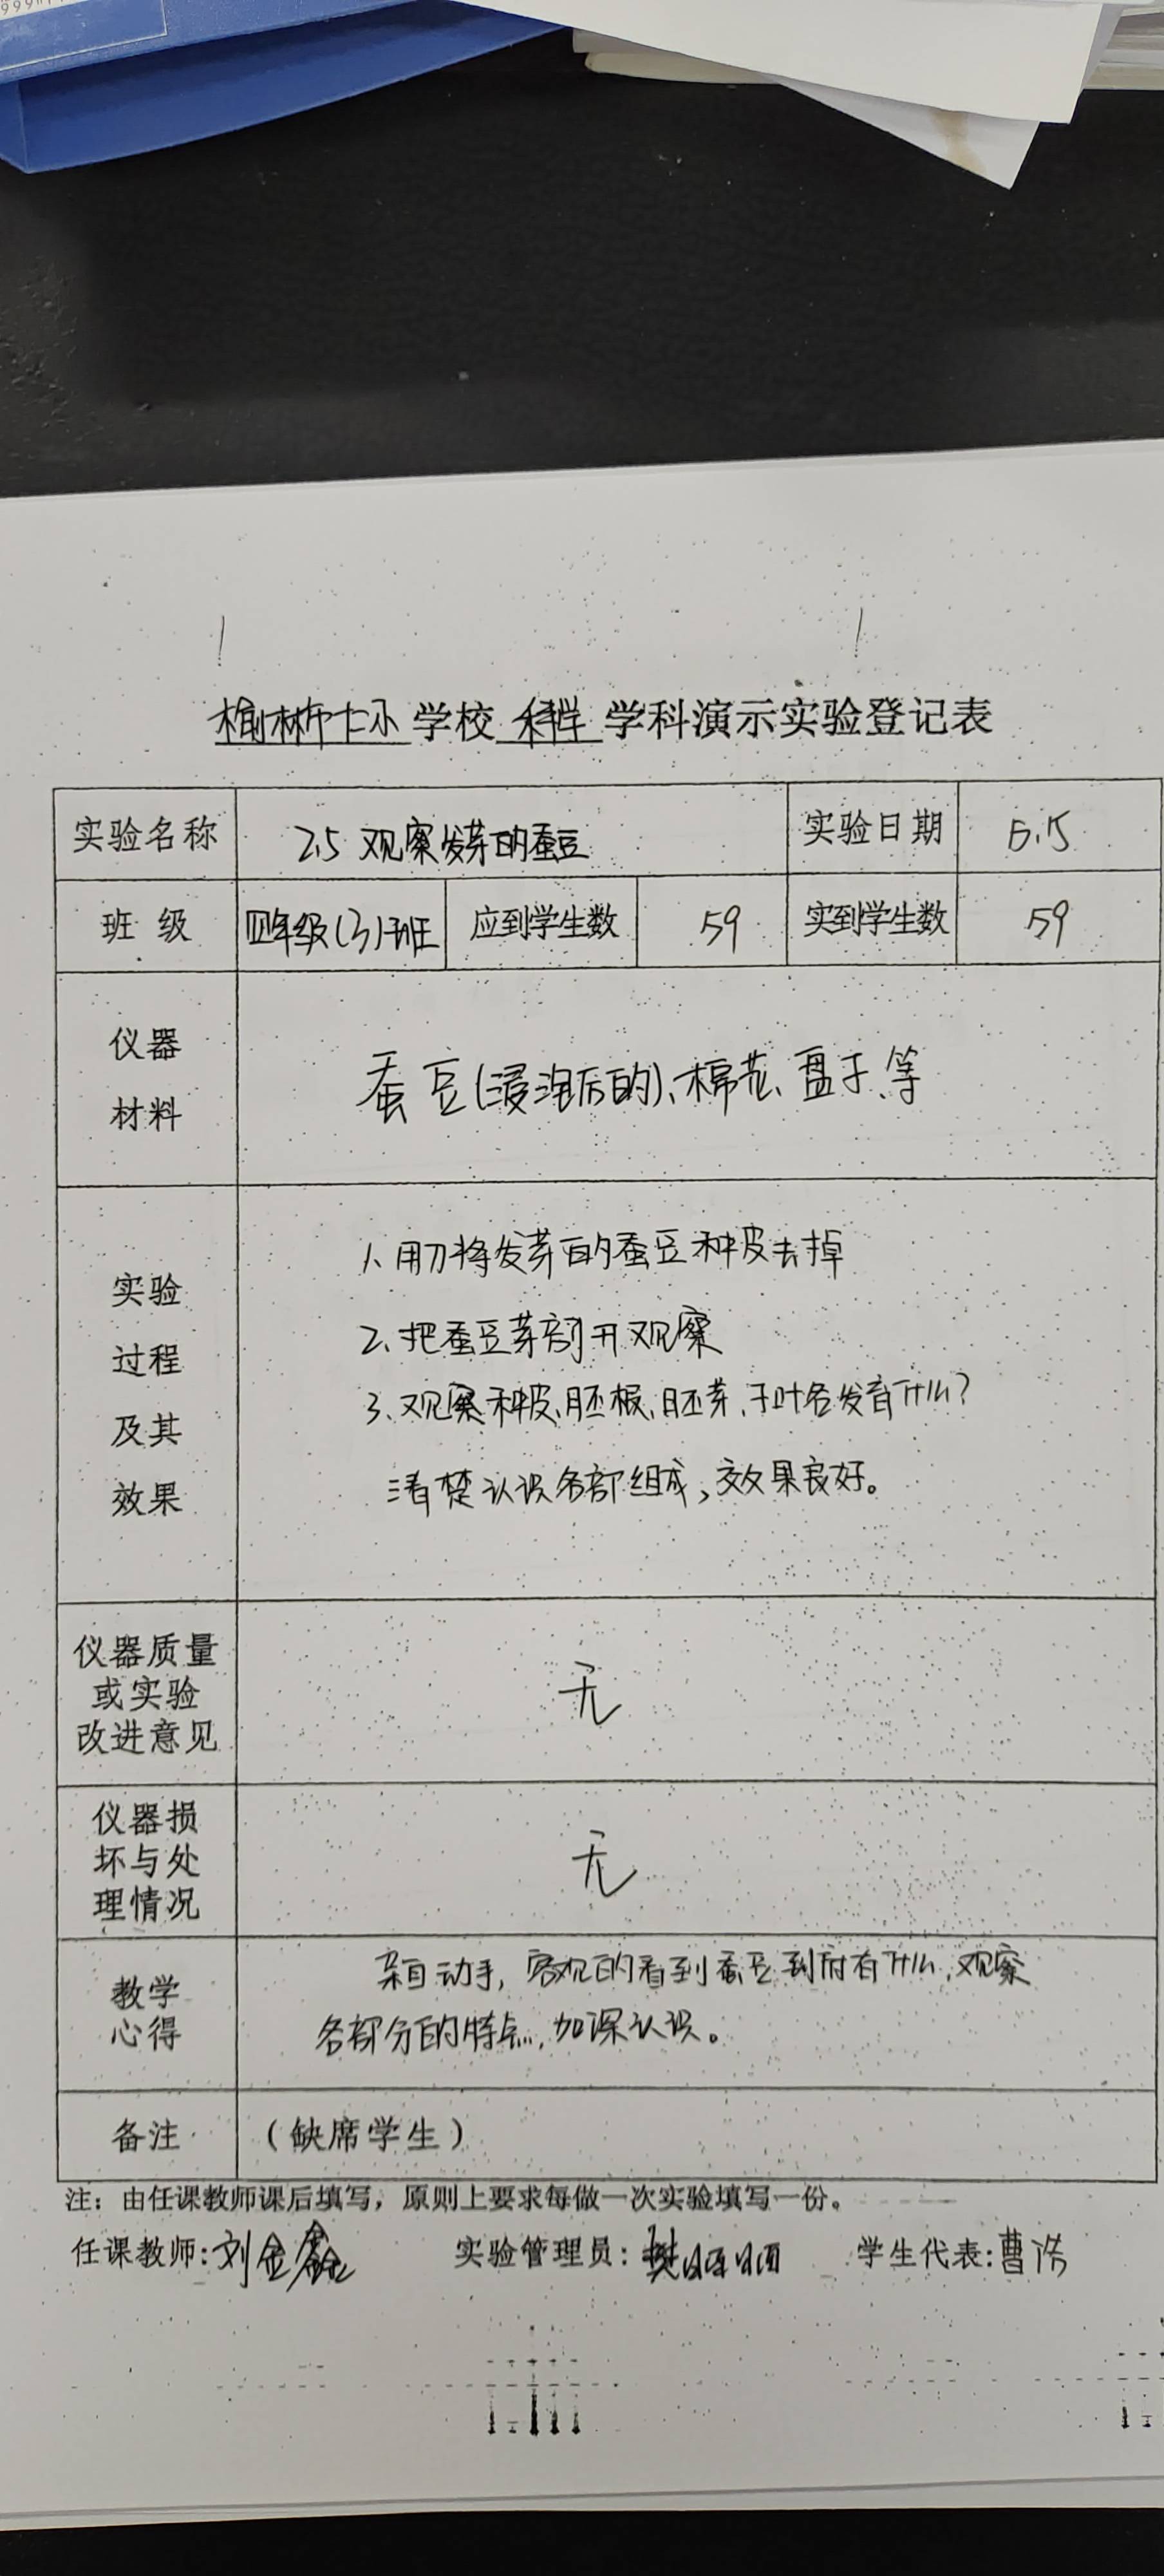 榆林市七小 学校 科学 学科演示实验登记表
实验名称 2.5 观察发芽的蚕豆 实验日期 5.15
班级 四年级(3)班 应到学生数 59 实到学生数 59
仪器
材料
蚕豆(浸泡后的)、棉花、盘子、等
实验
过程
及其
效果
1、用刀将发芽的蚕豆种皮去掉
2、把蚕豆芽剖开观察
3、观察种皮、胚根、胚芽、子叶各发育什么?
清楚认识各部组成,效果良好。
仪器质量
或实验
改进意见
无
仪器损
坏与处
理情况
无
教学
心得
亲自动手,客观的看到蚕豆到底有什么,观察
各部分的特点,加深认识。
备注 (缺席学生)
注:由任课教师课后填写,原则上要求每做一次实验填写一份。
任课教师:刘金鑫 实验管理员:樊 学生代表:曹浩